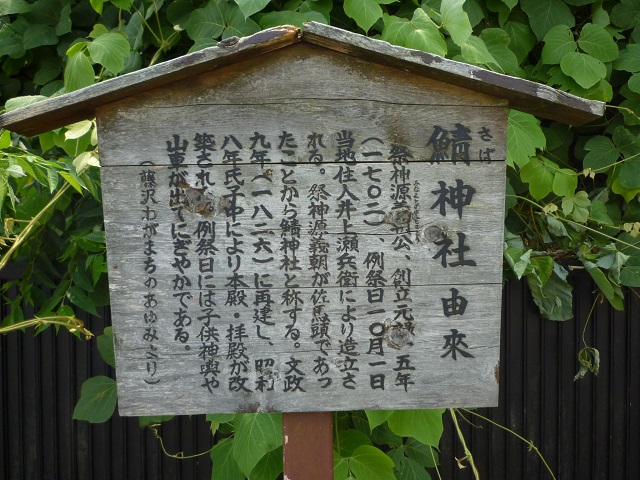 さば
鯖神社由來
祭神源義朝公、創立元禄、五年
(一七〇二)、例祭日一〇月一日
当地住人井上瀬兵衛により造立さ
れる。祭神源義朝が佐馬頭であっ
たことから鯖神社と称する。文政
九年(一八二六)に再建し、昭和
八年氏子中により本殿・拝殿が改
築された。例祭日には子供神輿や
山車が出てにぎやかである。
(藤沢わがまちのあゆみより)